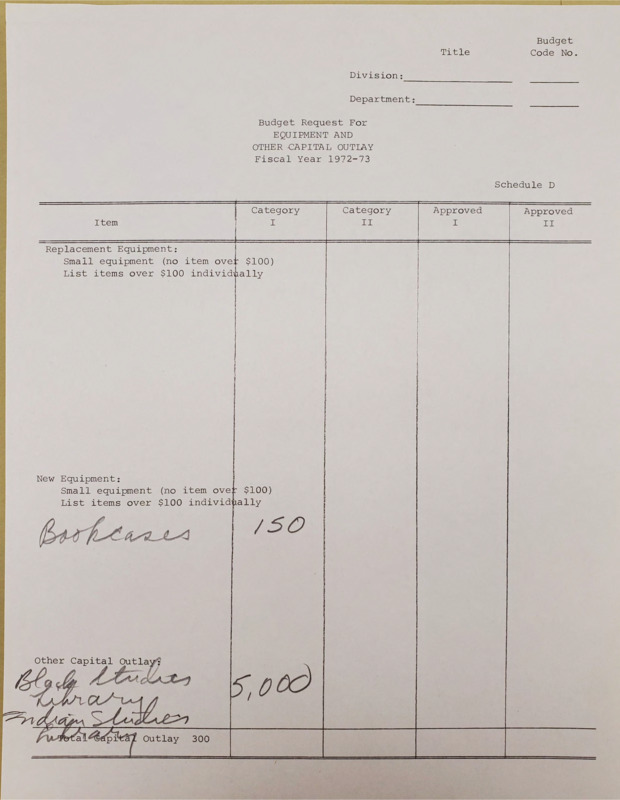 Title
Budget
Code No.
Division:
Department:
Budget Request For
EQUIPMENT AND
OTHER CAPITAL OUTLAY
Fiscal Year 1972-73
Schedule D
Item
Category
I
Category
II
Approved
I
Approved
II
Replacement Equipment:
Small equipment (no item over $100)
List items over $100 individually
New Equipment:
Small equipment (no item over $100)
List items over $100 individually
Bookcases 150
Other Capital Outlay:
Black Studies 5,000
Library
Indian Studies
Library
Total Capital Outlay 300